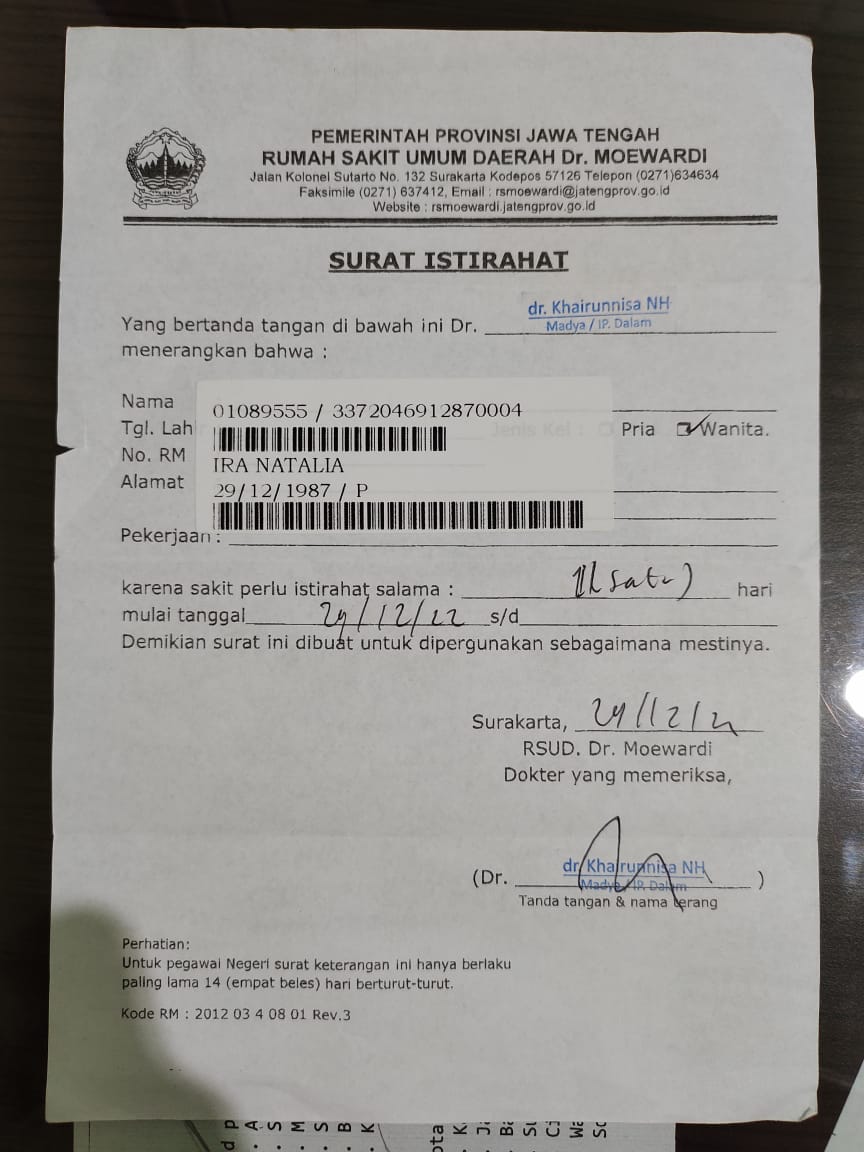 PEMERINTAH PROVINSI JAWA TENGAH
RUMAH SAKIT UMUM DAERAH Dr. MOEWARDI
Jalan Kolonel Sutarto No. 132 Surakarta Kodepos 57126 Telepon (0271)634634
Faksimile (0271) 637412, Email : rsmoewardi@jatengprov.go.id
Website : rsmoewardi.jatengprov.go.id
SURAT ISTIRAHAT
dr. Khairunnisa NH
Madya / IP. Dalam
Yang bertanda tangan di bawah ini Dr.
menerangkan bahwa :
Nama 01089555 / 3372046912870004
Tgl. Lahir Jenis Kel : Pria Wanita.
No. RM IRA NATALIA
Alamat 29/12/1987 / P
Pekerjaan :
karena sakit perlu istirahat salama : 1 (satu) hari
mulai tanggal 29/12/22 s/d
Demikian surat ini dibuat untuk dipergunakan sebagaimana mestinya.
Surakarta, 29/12/22
RSUD. Dr. Moewardi
Dokter yang memeriksa,
(Dr. dr. Khairunnisa NH )
Madya / IP. Dalam
Tanda tangan & nama terang
Perhatian:
Untuk pegawai Negeri surat keterangan ini hanya berlaku
paling lama 14 (empat beles) hari berturut-turut.
Kode RM : 2012 03 4 08 01 Rev.3